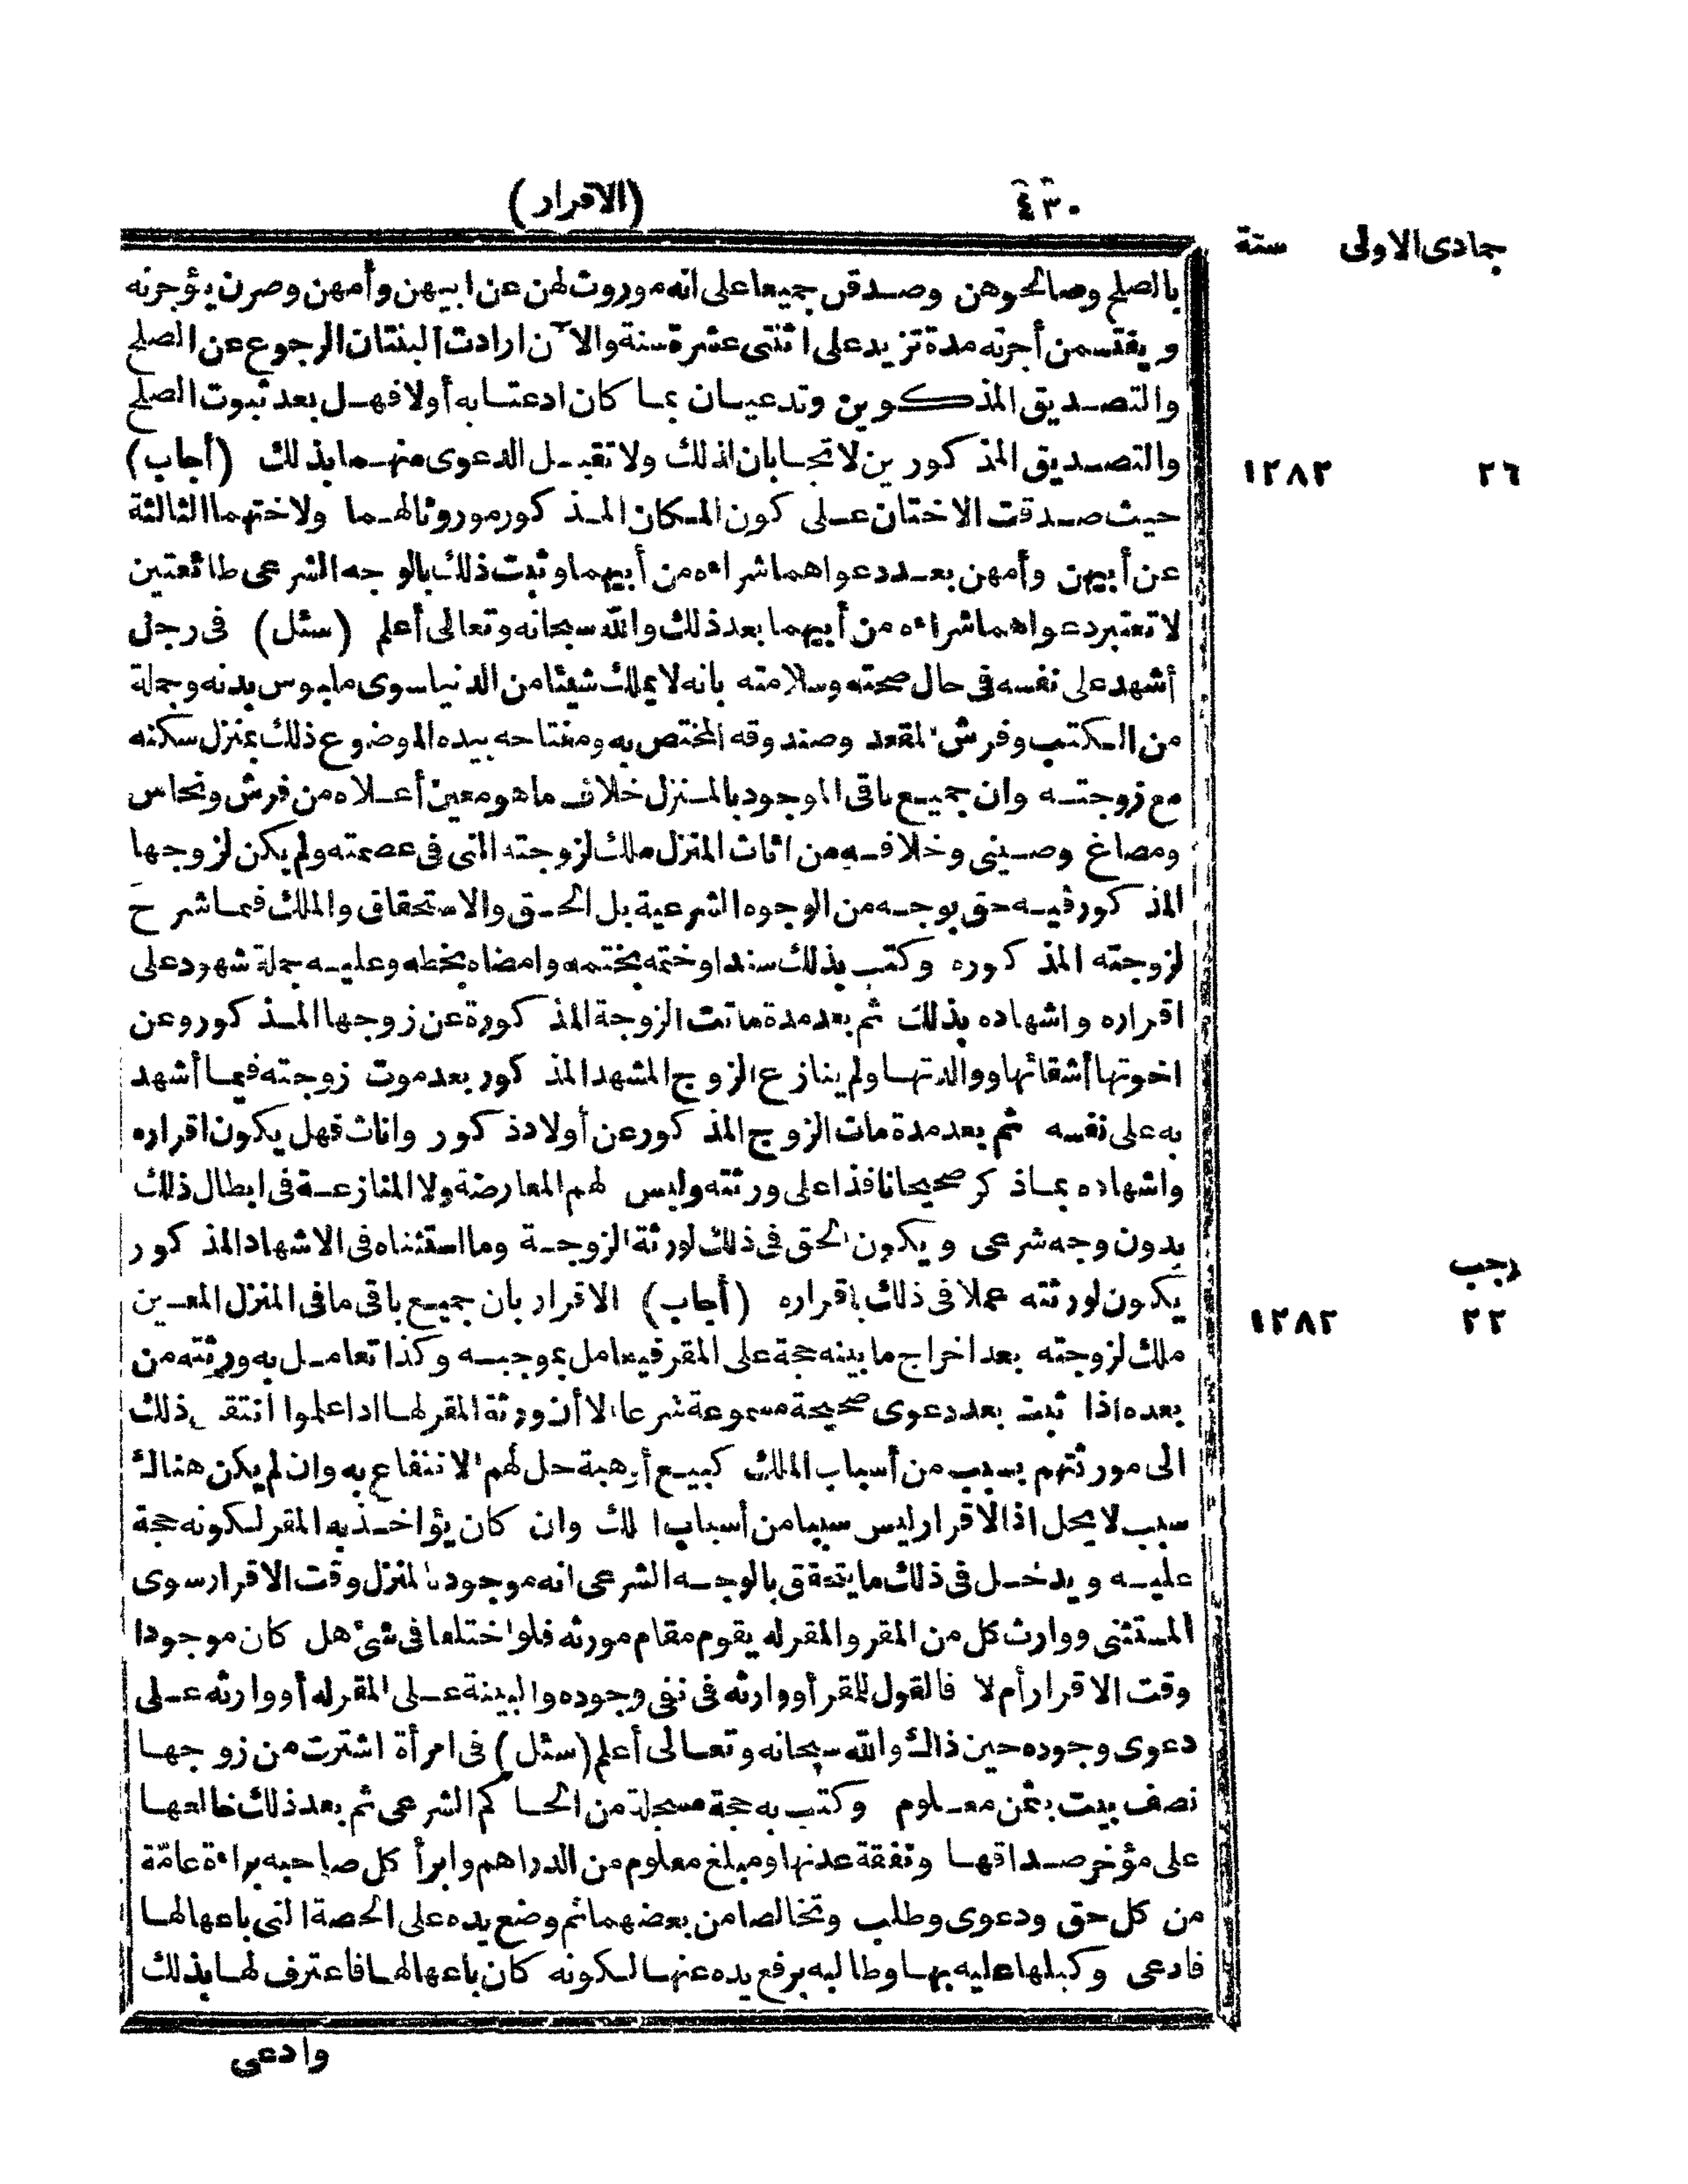 ٤٣٠
(الاقرار)
جمادى الاولى سنة
بالصلح وصالحوهن وصدقن جميعا على انه موروث لهن عن ابيهن وأمهن وصرن يؤجرنه
ويقتسمن أجرته مدة تزيد على اثنتى عشرة سنة والآن ارادت البنتان الرجوع عن الصلح
والتصديق المذكورين وتدعيان بما كان ادعتا به أولا فهل بعد ثبوت الصلح
والتصديق المذكورين لا تجابان لذلك ولا تقبل الدعوى منهما بذلك (أجاب)
٢٦ ١٢٨٢
حيث صدقت الاختان على كون المكان المذكور موروثا لهما ولاختهما الثالثة
عن أبيهن وأمهن بعد دعواهما شراءه من أبيهما وثبت ذلك بالوجه الشرعى طائعتين
لا تعتبر دعواهما شراءه من أبيهما بعد ذلك والله سبحانه وتعالى أعلم (سئل) فى رجل
أشهد على نفسه فى حال صحته وسلامته بانه لا يملك شيئا من الدنيا سوى ملبوس بدنه وجملة
من الكتب وفرش المقعد وصندوقه المختص به ومفتاحه بيده الموضوع ذلك بمنزل سكنه
مع زوجته وان جميع باقى الموجود بالمنزل خلاف ما هو معين أعلاه من فرش ونحاس
ومصاغ وصينى وخلافه من اثاث المنزل ملك لزوجته التى فى عصمته ولم يكن لزوجها
المذكور فيه حق بوجه من الوجوه الشرعية بل الحق والاستحقاق والملك فيما شرح
لزوجته المذكوره وكتب بذلك سندا وختمه بختمه وامضاه بخطه وعليه جملة شهود على
اقراره واشهاده بذلك ثم بعد مدة ماتت الزوجة المذكورة عن زوجها المذكور وعن
اخوتها أشقائها ووالدتها ولم ينازع الزوج المشهد المذكور بعد موت زوجته فيما أشهد
به على نفسه ثم بعد مدة مات الزوج المذكور عن أولاد ذكور واناث فهل يكون اقراره
واشهاده بما ذكر صحيحا نافذا على ورثته وليس لهم المعارضة ولا المنازعة فى ابطال ذلك
بدون وجه شرعى ويكون الحق فى ذلك لورثة الزوجة وما استثناه فى الاشهاد المذكور
رجب
يكون لورثته عملا فى ذلك باقراره (أجاب) الاقرار بان جميع باقى ما فى المنزل المعين
٢٢ ١٢٨٢
ملك لزوجته بعد اخراج ما بينه حجة على المقر فيعامل بموجبه وكذا تعامل به ورثته من
بعده اذا ثبت بعد دعوى صحيحة مسموعة شرعا الا أن ورثة المقر لها اذا علموا انتقل ذلك
الى مورثتهم بسبب من أسباب الملك كبيع أو هبة حل لهم الانتفاع به وان لم يكن هناك
سبب لا يحل اذ الاقرار ليس سببا من أسباب الملك وان كان يؤاخذ به المقر لكونه حجة
عليه ويدخل فى ذلك ما يتحقق بالوجه الشرعى انه موجود بالمنزل وقت الاقرار سوى
المستثنى ووارث كل من المقر والمقر له يقوم مقام مورثه فلو اختلفا فى شئ هل كان موجودا
وقت الاقرار أم لا فالقول للمقر أو وارثه فى نفى وجوده والبينة على المقر له أو وارثه على
دعوى وجوده حين ذاك والله سبحانه وتعالى أعلم (سئل) فى امرأة اشترت من زوجها
نصف بيت بثمن معلوم وكتب به حجة مسجلة من الحاكم الشرعى ثم بعد ذلك خالعها
على مؤخر صداقها ونفقة عدتها ومبلغ معلوم من الدراهم وابرأ كل صاحبه براءة عامّة
من كل حق ودعوى وطلب وتخالصا من بعضهما ثم وضع يده على الحصة التى باعها لها
فادعى وكيلها عليه بها وطالبه برفع يده عنها لكونه كان باعها لها فاعترف لها بذلك
وادعى